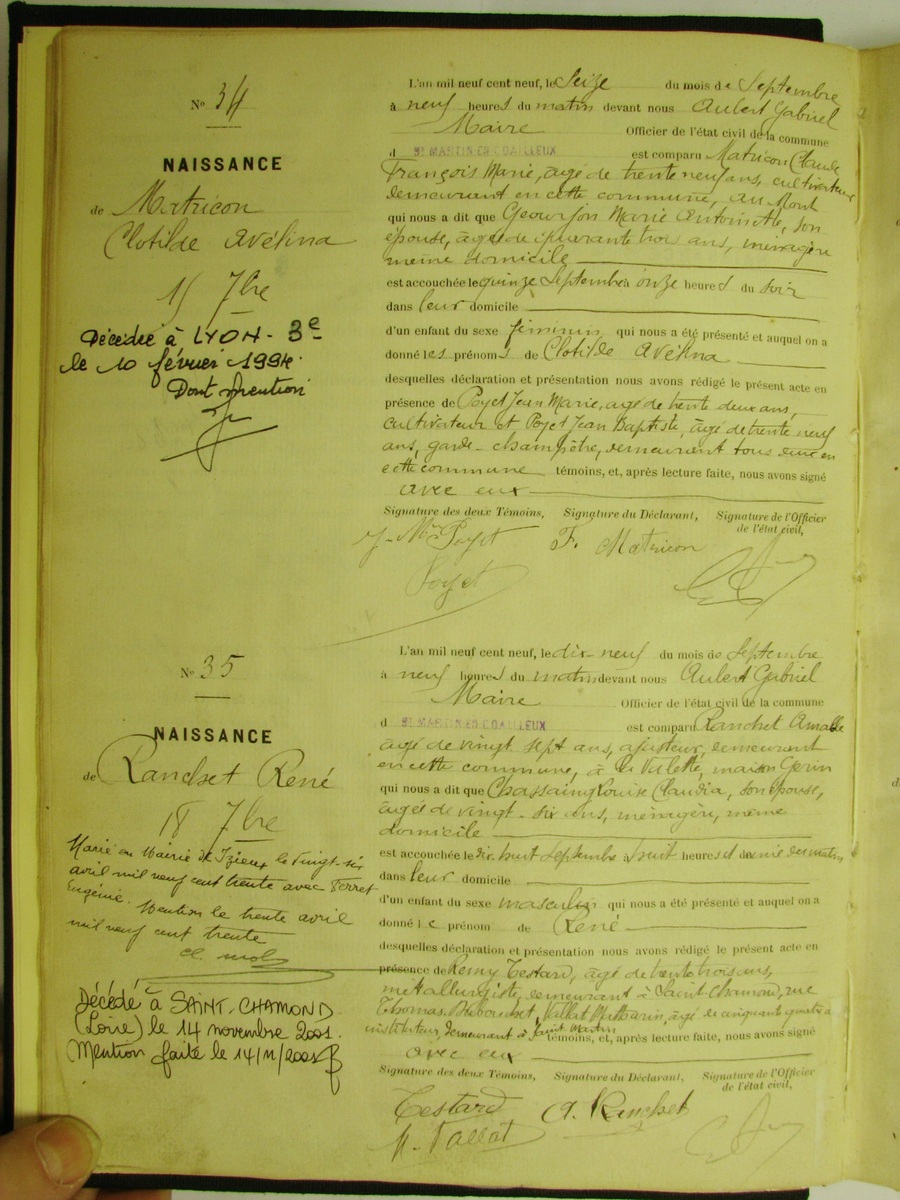 N° 34
NAISSANCE
de Matricon
Clotilde Avélina
15 7bre
Décédée à LYON - 3e
le 10 février 1994.
Dont mention
L'an mil neuf cent neuf, le Seize du mois de Septembre
à neuf heures du matin devant nous Aubert Gabriel
Maire Officier de l'état civil de la commune
d ST MARTIN-EN-COAILLEUX est comparu Matricon Claude
François Marie, agé de trente neuf ans, cultivateur
demeurant en cette commune, au Mont
qui nous a dit que Geourjon Marie Antoinette, son
épouse, âgée de quarante trois ans, ménagère
même domicile
est accouchée le quinze Septembre à onze heures du soir
dans leur domicile
d'un enfant du sexe féminin qui nous a été présenté et auquel on a
donné les prénoms de Clotilde Avélina
desquelles déclaration et présentation nous avons rédigé le présent acte en
présence de Poyet Jean Marie, agé de trente deux ans,
cultivateur et Poyet Jean Baptiste, âgé de trente neuf
ans, garde-champêtre, demeurant tous deux en
cette commune témoins, et, après lecture faite, nous avons signé
avec eux
Signature des deux Témoins, Signature du Déclarant, Signature de l'Officier
de l'état civil,
J. Mie Poyet F. Matricon
Poyet
N° 35
NAISSANCE
de Ranchet René
18 7bre
Marié en Mairie de Izieux le vingt-six
avril mil neuf cent trente avec Ferret
Eugénie. Mention le trente avril
mil neuf cent trente
Décédé à SAINT-CHAMOND
(Loire) le 14 novembre 2001.
Mention faite le 14/11/2001
L'an mil neuf cent neuf, le dix-neuf du mois de Septembre
à neuf heures du matin devant nous Aubert Gabriel
Maire Officier de l'état civil de la commune
d ST MARTIN-EN-COAILLEUX est comparu Ranchet Amable
âgé de vingt sept ans, ajusteur, demeurant
en cette commune, à la Valette, maison Gerin
qui nous a dit que Chassaing Louise Claudia, son épouse,
âgée de vingt-six ans, ménagère, même
domicile
est accouchée le dix huit Septembre à huit heures et demie du matin
dans leur domicile
d'un enfant du sexe masculin qui nous a été présenté et auquel on a
donné le prénom de René
desquelles déclaration et présentation nous avons rédigé le présent acte en
présence de Remy Testard, âgé de trente trois ans,
métallurgiste, demeurant à Saint-Chamond, rue
Thomas Vallat âgé de cinquante quatre a
instituteur, demeurant à Saint Martin témoins, et, après lecture faite, nous avons signé
avec eux
Signature des deux Témoins, Signature du Déclarant, Signature de l'Officier
de l'état civil,
Testard A. Ranchet
M. Vallat